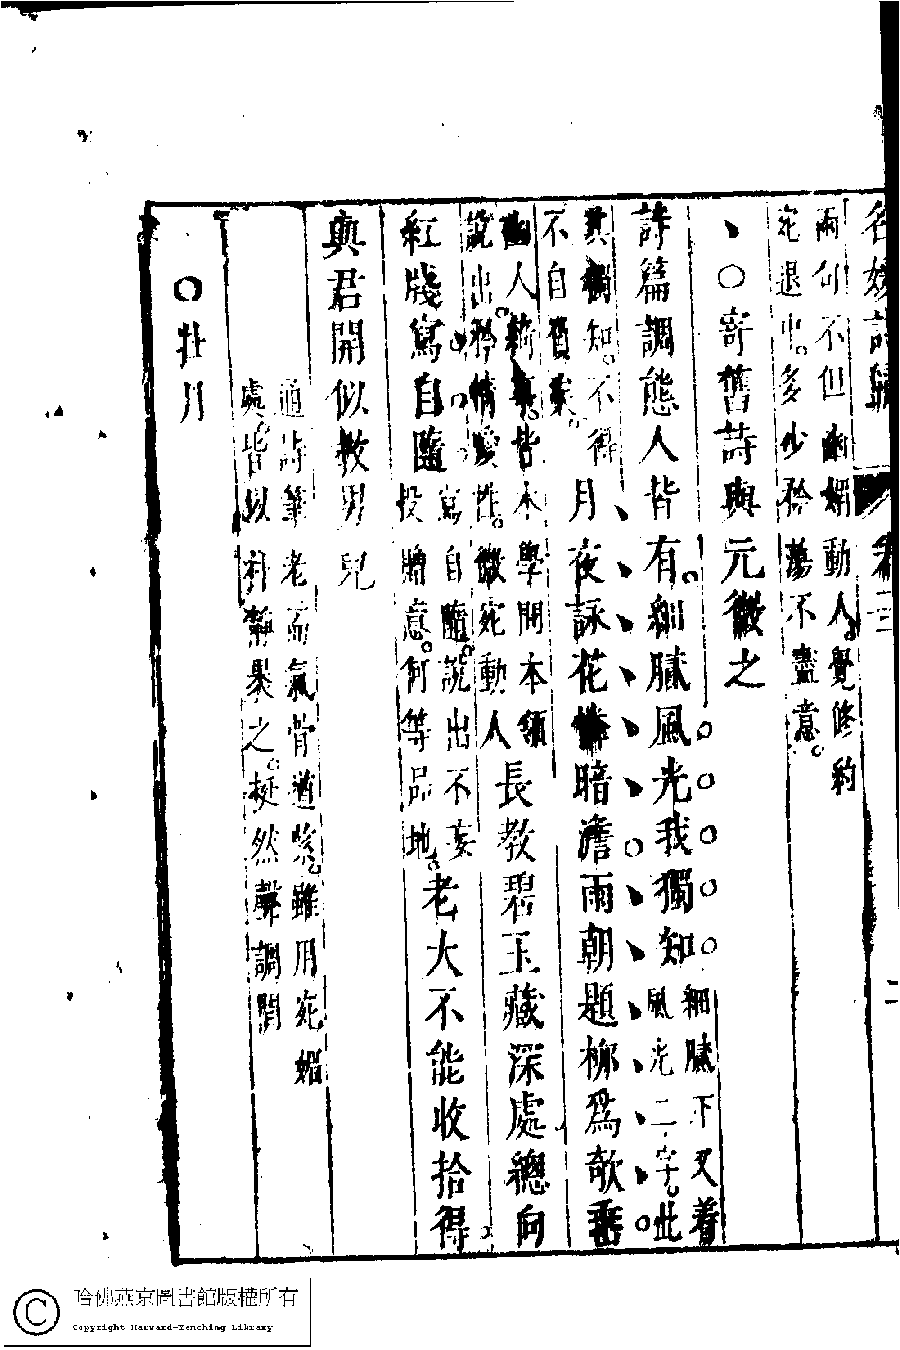 名媛詩歸 卷三 二
兩句不但幽媚動人。覺修約
宛退中。多少矜蕩不盡意。
、○寄舊詩與元微之
詩篇調態人皆有。細膩風光我獨知
細膩下又着
風光二字。此
真獨知。不得
不自留矣。
月夜詠花憐暗澹雨朝題柳為欹垂
幽人綺事。皆本學問本領
說出。矜情慢性。微宛動人
長教碧玉藏深處總向
紅牋寫自隨
寫自隨。說出不妄
投贈意。何等品地。
老大不能收拾得
與君開似教男兒
通詩筆老而氣骨遒緊。雖用宛媚
處。皆以朴靜聚之。挺然聲調間
○牡丹
哈佛燕京圖書館版權所有
Copyright Harvard-Yenching Library